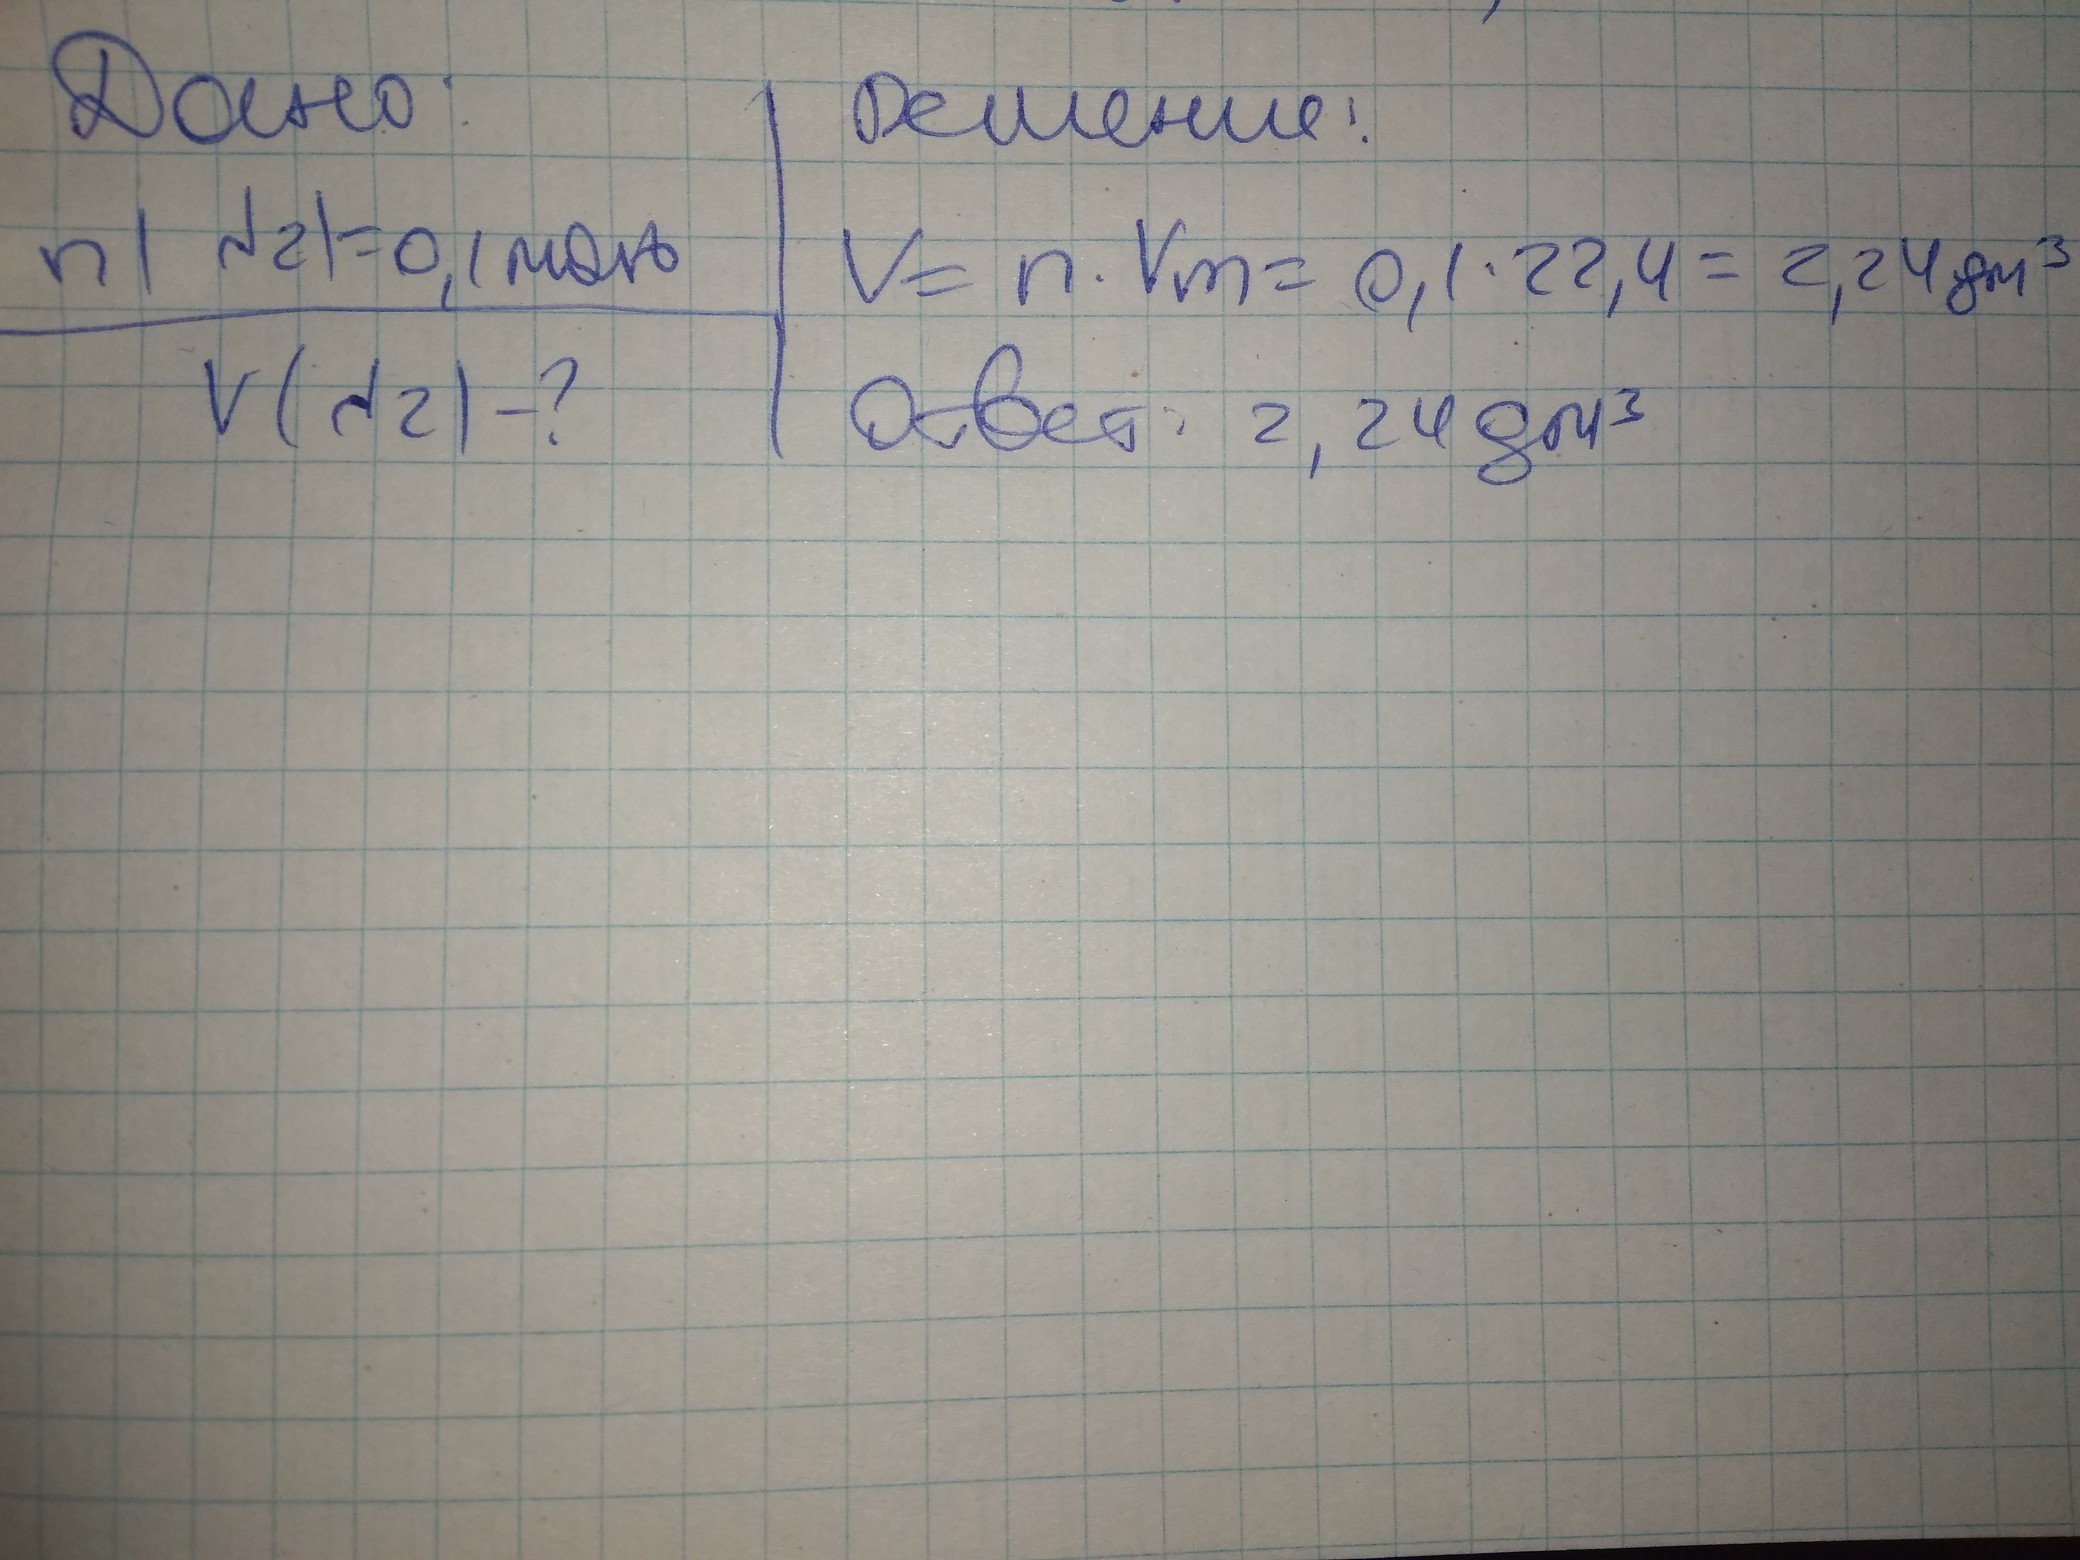 Дано:
n( N2)=0,1 моль
V( N2) -?
Решение:
V= n · Vm = 0,1·22,4 = 2,24 дм³
Ответ: 2,24 дм³